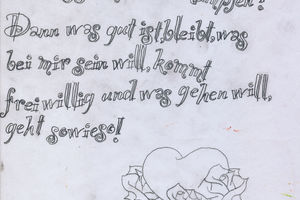 kämpfen!
Dann was gut ist,bleibt,was
bei mir sein will, kommt
freiwillig und was gehen will,
geht sowieso!